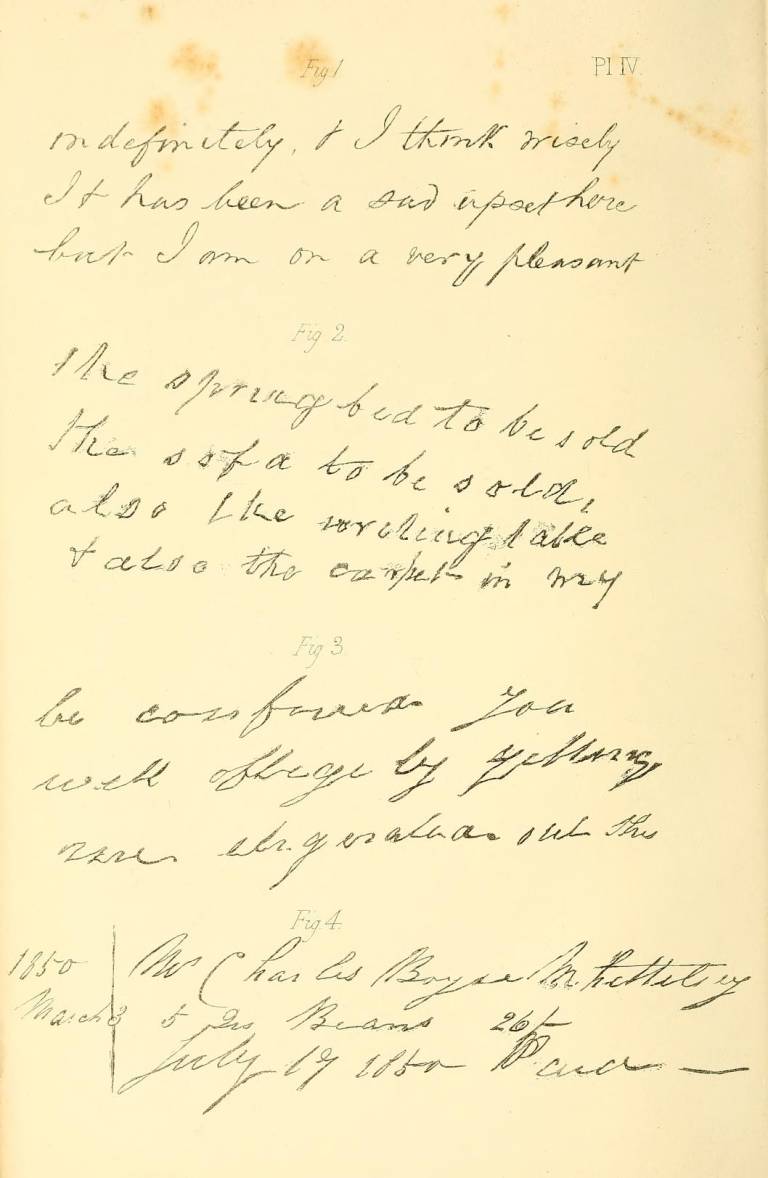 Fig 1
Pl IV.
indefinitely, & I think wisely
It has been a sad upset here
but I am on a very pleasant
Fig 2.
The spring bed to be sold
The sofa to be sold,
also the writing table
& also the carpet in my
Fig 3
be confused you
will oblige by getting
out this
Fig 4.
1850 Mr Charles Boyse
March 3 5 Qrs Beans 26/-
July 17 1850 Paid —